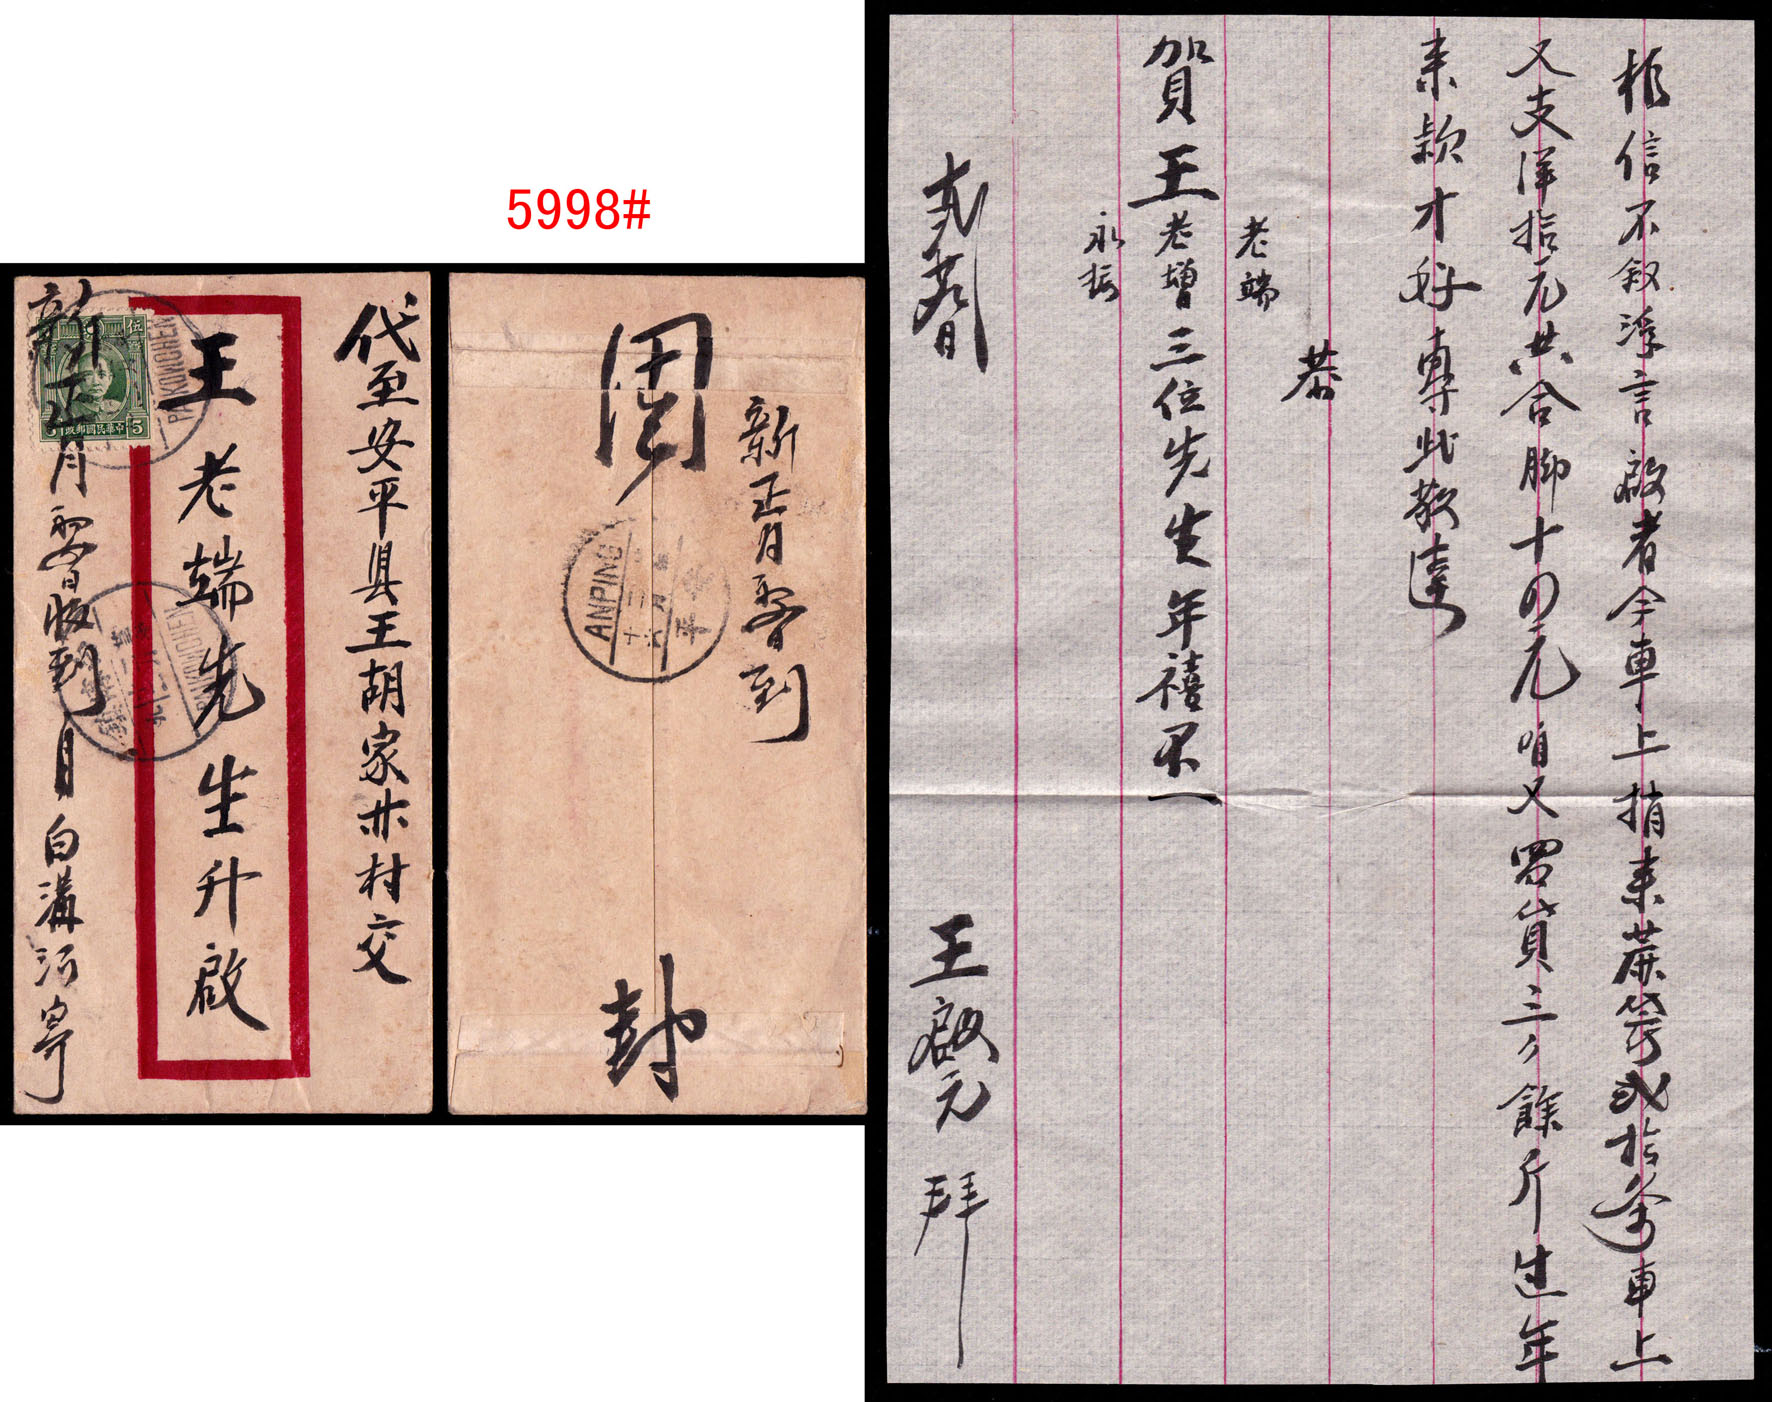 5998#
代至安平县王胡家庄村交
王老端先生升啟
新正月初四日收到 月 白溝河寄
伍 5
政郵國民華中
PAIKOWCHEN
PAIKOWCHEN
固
封
新正月初四日到
ANPING
平安
信不叙浮言啟者今車上捎来蔴袋弍拾条車上
又支洋拾元共合脚十四元咱又買貨三千餘斤过年
来款才好專此敬達
恭
老端
賀王老增三位先生年禧不一
永
王啟元 拜